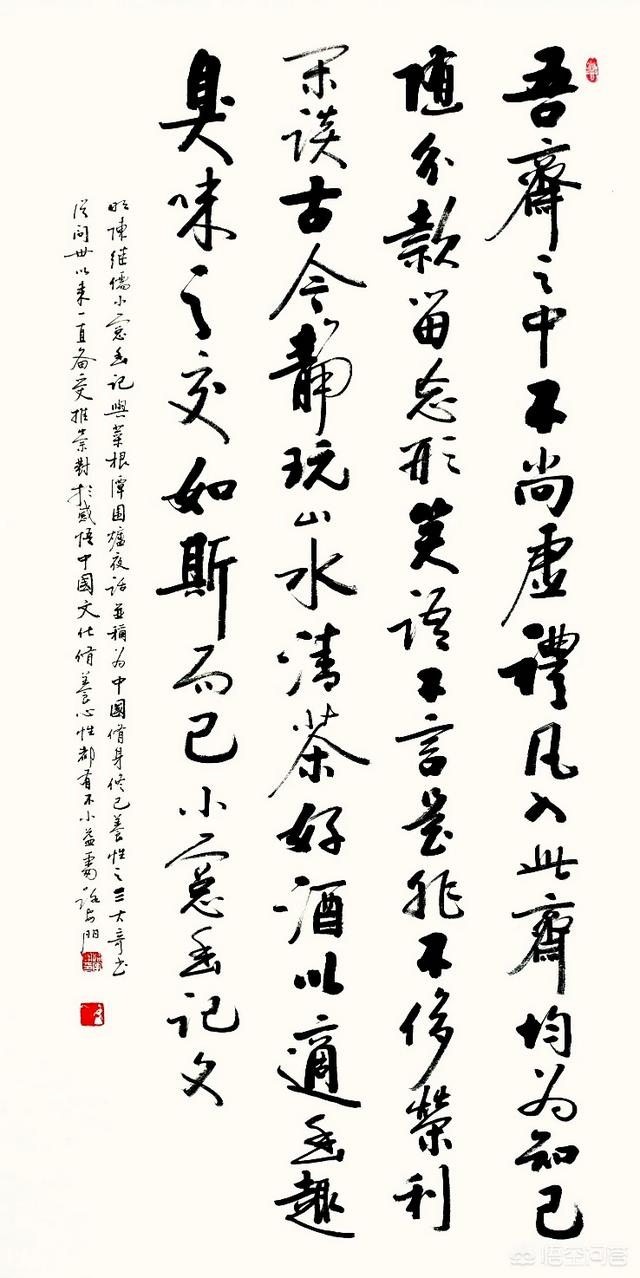 吾齋之中不尚虛禮凡入此齋均為知己
隨分款留忘形笑語不言是非不侈榮利
閑談古今靜玩山水清茶好酒以適幽趣
臭味之交如斯而已小窗幽記文
明陳繼儒小窗幽記與菜根譚圍爐夜話並稱為中國脩身修己養性之三大奇书
從问世以來一直备受推崇對於感悟中國文化脩養心性都有不小益處
悟空问答